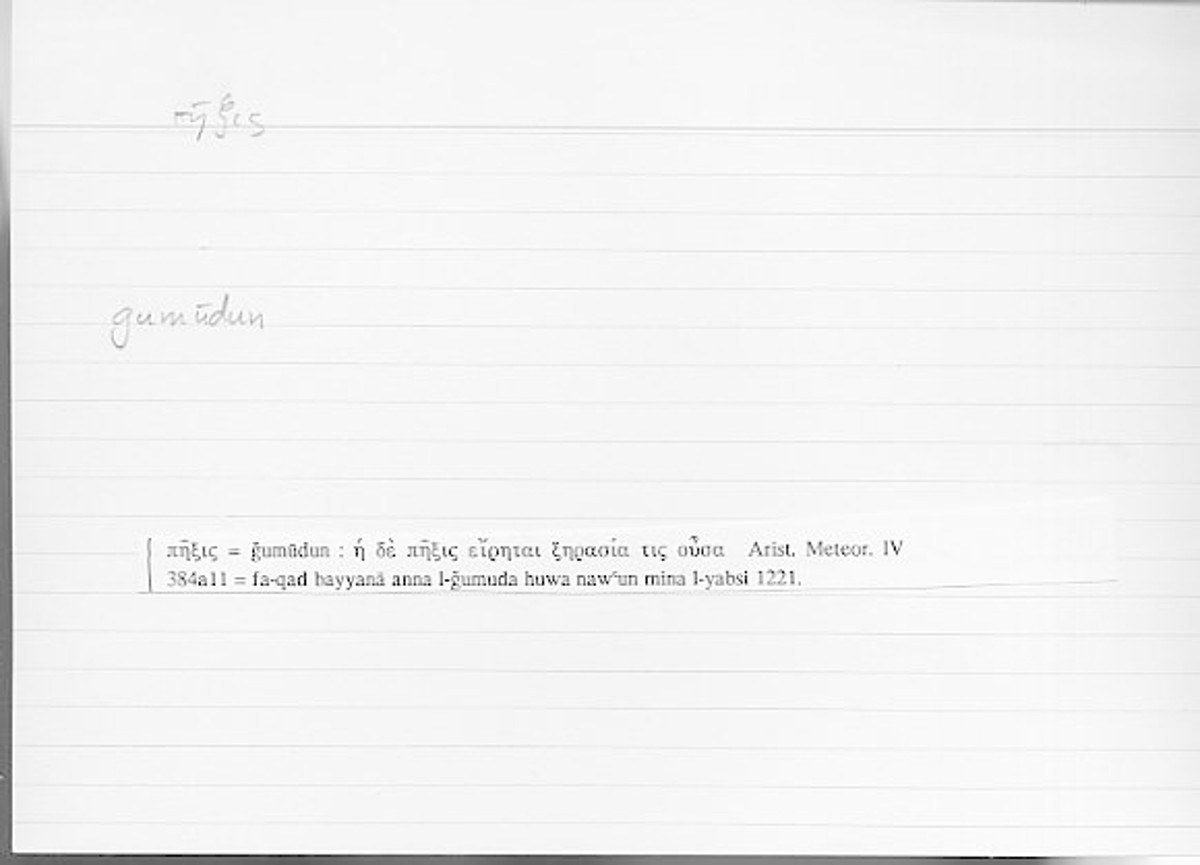 πῆξις
gumūdun
πῆξις = ǧumūdun : ἡ δὲ πῆξις εἴρηται ξηρασία τις οὖσα Arist. Meteor. IV
384a11 = fa-qad bayyanā anna l-ǧumuda huwa nawʿun mina l-yabsi 1221.